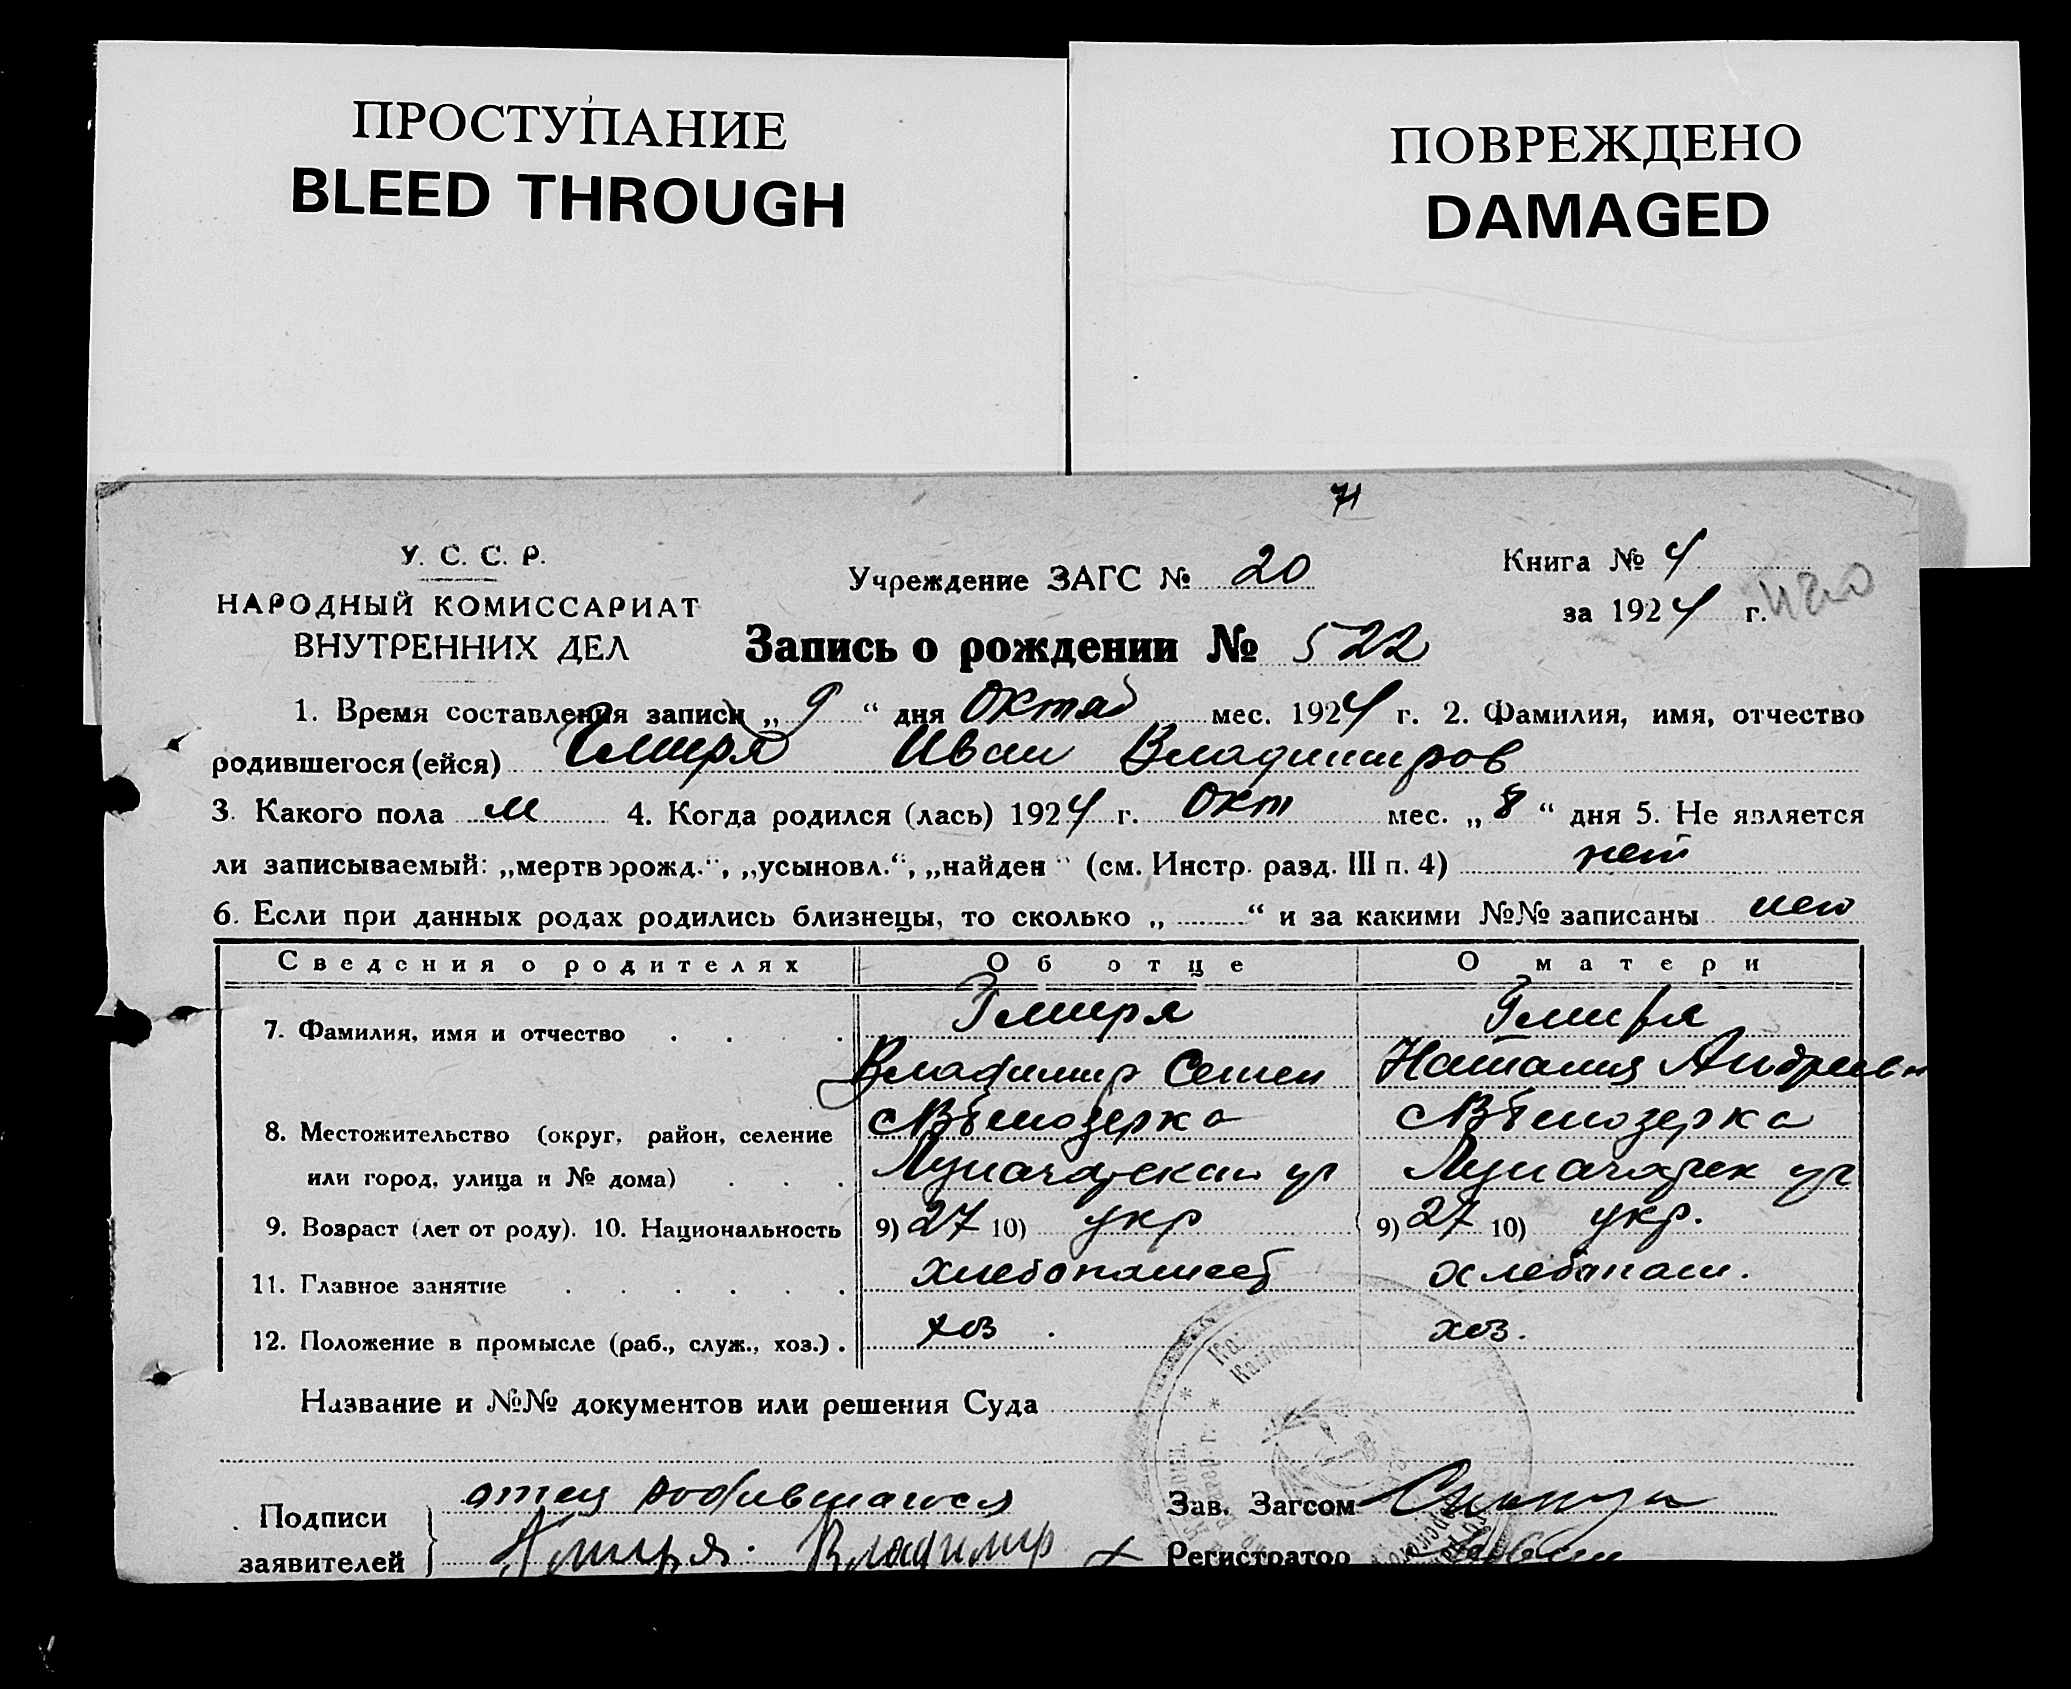 ПРОСТУПАНИЕ
BLEED THROUGH
ПОВРЕЖДЕНО
DAMAGED
71
У. С. С. Р.
НАРОДНЫЙ КОМИССАРИАТ
ВНУТРЕННИХ ДЕЛ
Учреждение ЗАГС № 20
Книга № 4
за 1924 г.
Запись о рождении № 522
1. Время составления записи „ 9 “ дня Октяб мес. 1924 г. 2. Фамилия, имя, отчество
родившегося (ейся) Иван Владимиров
3. Какого пола м 4. Когда родился (лась) 1924 г. Окт мес. „ 8 “ дня 5. Не является
ли записываемый: „мертворожд.“, „усыновл.“, „найден “ (см. Инстр. разд. III п. 4) нет
6. Если при данных родах родились близнецы, то сколько „ “ и за какими №№ записаны нет
Сведения о родителях Об отце О матери
7. Фамилия, имя и отчество
Владимир Семен Наталия Андреевн
8. Местожительство (округ, район, селение Белозерка Белозерка
или город, улица и № дома)
9. Возраст (лет от роду). 10. Национальность 9) 27 10) укр 9) 27 10) укр.
11. Главное занятие хлебопашец хлебопаш.
12. Положение в промысле (раб., служ., хоз.) хоз хоз.
Название и №№ документов или решения Суда
Подписи заявителей отец родившагося
Владимир
Зав. Загсом
Регистратор